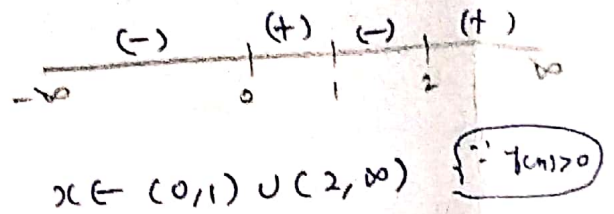 (-) (+) (-) (+)
-∞ 0 1 2 ∞
x ∈ (0,1) ∪ (2,∞) {∵ f(x)>0